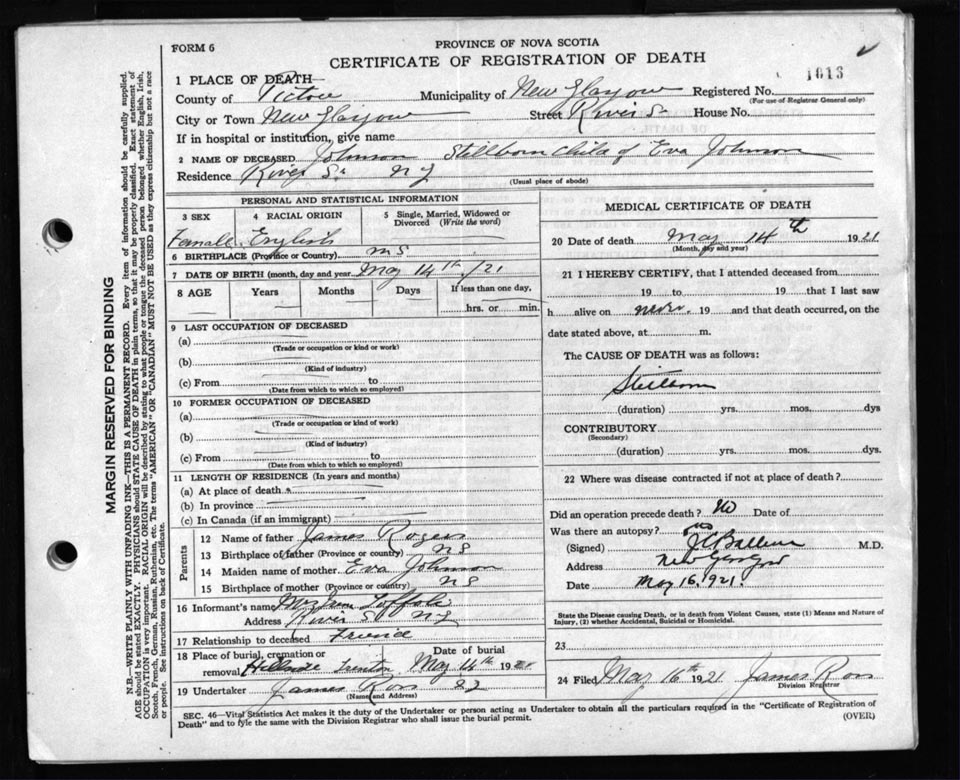 FORM 6
PROVINCE OF NOVA SCOTIA
CERTIFICATE OF REGISTRATION OF DEATH
1013
1 PLACE OF DEATH
County of Pictou Municipality of New Glasgow Registered No.
(For use of Registrar General only)
City or Town New Glasgow Street River St House No.
If in hospital or institution, give name
2 NAME OF DECEASED Johnson Stillborn Child of Eva Johnson
Residence River St N G
(Usual place of abode)
PERSONAL AND STATISTICAL INFORMATION
3 SEX 4 RACIAL ORIGIN 5 Single, Married, Widowed or Divorced (Write the word)
Famall English
6 BIRTHPLACE (Province or Country) N S
7 DATE OF BIRTH (month, day and year) May 14th /21
8 AGE Years Months Days If less than one day,
hrs. or min.
9 LAST OCCUPATION OF DECEASED
(a)
(Trade or occupation or kind or work)
(b)
(Kind of industry)
(c) From to
(Date from which to which so employed)
10 FORMER OCCUPATION OF DECEASED
(a)
(Trade or occupation or kind of work)
(b)
(Kind of industry)
(c) From to
(Date from which to which so employed)
11 LENGTH OF RESIDENCE (In years and months)
(a) At place of death
(b) In province
(c) In Canada (if an immigrant)
Parents
12 Name of father James Rogers
13 Birthplace of father (Province or country) N S
14 Maiden name of mother Eva Johnson
15 Birthplace of mother (Province or country) N S
16 Informant's name Mrs
Address River St N G
17 Relationship to deceased Friend
18 Place of burial, cremation or removal Hillside Trenton Date of burial May 14th 1921
19 Undertaker James Ross
(Name and Address)
MEDICAL CERTIFICATE OF DEATH
20 Date of death May 14th 1921
(Month, day and year)
21 I HEREBY CERTIFY, that I attended deceased from
19 to 19 that I last saw
h alive on never 19 and that death occurred, on the
date stated above, at m.
The CAUSE OF DEATH was as follows:
Stillborn
(duration) yrs. mos. dys
CONTRIBUTORY
(Secondary)
(duration) yrs. mos. dys.
22 Where was disease contracted if not at place of death?
Did an operation precede death? No Date of
Was there an autopsy? no
(Signed) M.D.
Address New Glasgow
Date May 16, 1921.
State the Disease causing Death, or in death from Violent Causes, state (1) Means and Nature of Injury, (2) whether Accidental, Suicidal or Homicidal.
23
24 Filed May 16th 1921 James Ross
Division Registrar
SEC. 46—Vital Statistics Act makes it the duty of the Undertaker or person acting as Undertaker to obtain all the particulars required in the "Certificate of Registration of Death" and to fyle the same with the Division Registrar who shall issue the burial permit.
(OVER)
MARGIN RESERVED FOR BINDING
N.B.—WRITE PLAINLY WITH UNFADING INK—THIS IS A PERMANENT RECORD. Every item of information should be carefully supplied.
AGE should be stated EXACTLY. PHYSICIANS should STATE CAUSE OF DEATH in plain terms, so that it may be properly classified. Exact statement of
OCCUPATION is very important. RACIAL ORIGIN will be described by stating to what people or tongue the deceased person belonged whether English, Irish,
Scotch, French, German, Russian, Ruthenian, etc. The terms "AMERICAN" OR "CANADIAN" MUST NOT BE USED as they express citizenship but not a race
or people. See instructions on back of Certificate.